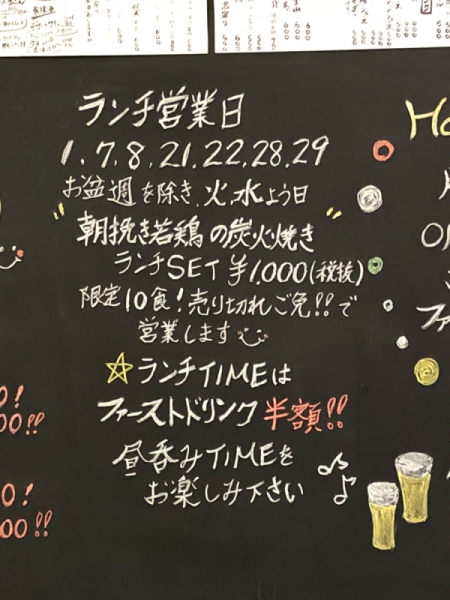 ランチ営業日
1.7.8.21.22.28.29
お盆週を除き、火、水よう日
"朝挽き若鶏の炭火焼き"
ランチSET ¥1,000(税抜)
限定10食!売り切れご免!!で
営業します
☆ランチTIMEは
ファーストドリンク半額!!
昼呑みTIMEを
お楽しみ下さい♪
0!
00!!
0!
00!!
Ho
ファ